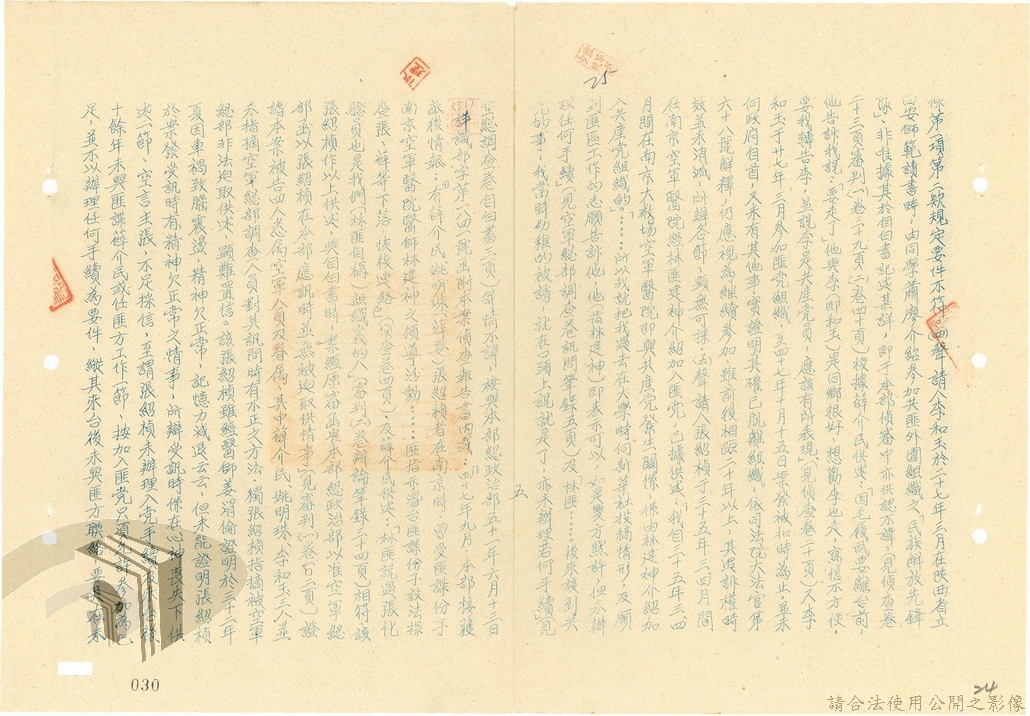 條第二項第二款規定要件不符。四聲請人李和玉於二十七年三月在陝西省立
西安師範讀書時，由同學蕭廖介紹參加共匪外圍組織人民族解放先鋒
隊，非唯據其於自白書記述甚詳，即于本部偵審中亦供認不諱，（見偵查卷
二十三頁審判(一)卷三十九頁(二)卷四十頁）復據薛介民供述：「因毛履武要離台前，
他告訴我說：要走了」他與李（即和玉）是同鄉很好，想勸李也走，寫信不方便，
要我轉告李，並說李是共產党員，應該有所表現。（見偵查卷二十頁）又李
和玉于廿七年三月參加匪党組織，至四七年十月十五日案發被扣時為止，並未
向政府自首，又未有其他事實證明其確已脫離組織，依司法院大法官第
六十八號解釋，仍應視為繼續參加，雖前後相距二十年以上，其追訴權時
效並未消滅，所辯各節，顯無可採(五)聲請人張紹楨于三十五年三四月間
在南京空軍醫院經林匪建神介紹加入匪党，已據供述：「我自三十五年三四
月間在南京大教場空軍醫院即與共產党發生關係，係由林建神介紹加
入共產党組織的……所以我就把我過去在大學時何斯華 技搞情形，及願
到匪區工作的志願告訴他，他（指林建神）即表示可以，如是雙方默許，但未辦
理任何手續」（見空軍總部調查卷訊問筆錄五頁）及「林匪……後來談到共
党的事，我當時幼稚的被誘，就在口頭上說說就是了，亦未辦理若何手續」（見
空總調查卷自白書二頁）等情不諱，核與本部總政治部五十一年六月十三日
(51)詳識部字第一八四一號函附本案偵查報告書內載：「四七年九月，本部接獲
敵後情報：「有薛介民姚明珠（薛妻）張紹楨者在南京時，曾受匪諜份子
南京空軍醫院醫師林建神之領導活動……匪指示潛台匪諜份子設法探
查張、薛等下落，恢復連絡」（偵查卷四頁）及薛介民供述：「林匪說過張化
驗員也是我們（林匪自稱）組織裏的人」（審判(二)卷辯論筆錄三十四頁）相符該
張紹楨作以上供述，與自白書時，考經原審函准本部總政治部以准空軍總
部函以張紹楨在本部應訊時並無被迫取供情事」（見審判(一)卷一百二頁）證
諸本案被告四人悉屬空軍人員及眷屬，其中薛介民、姚明珠、李和玉三人並
未指摘空軍總部調查人員對其訊問時有不正之方法，獨張紹楨指摘被空軍
總部非法迫取供述，顯難置信。該張紹楨雖經醫師姜渭倫證明於三十二年
夏因車禍致腦震盪，精神欠正常，記憶力減退云云，但未能證明張紹楨
於案發受訊時有精神欠正常之情事，所辯受訊時係在心神喪失下供
述一節，空言主張，不足採信，至謂張紹楨未辦理入党手續，且來台後
十餘年未與匪諜薛介民或任匪方工作一節，按加入匪党只須允許參加為已
足，並不以辦理任何手續為要件，縱其來台後未與匪方聯絡，要其在未
五
25
24
030
請合法使用公開之影像